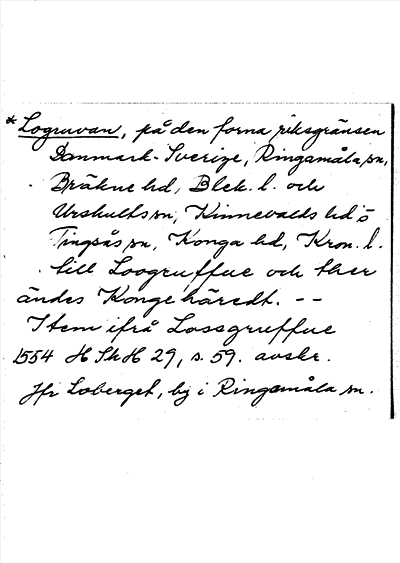 *Logruvan, på den forna riksgränsen
Danmark-Sverige, Ringamåla sn,
Bräkne hd, Blek. l. och
Urshults sn, Kinnevalds hd o
Tingsås sn, Konga hd, Kron. l.
till Loogruffue och ther
ändes Konge häredt. --
Item ifrå Lossgruffue
1554 HSkH 29, s. 59. avskr.
Jfr Loberget, by i Ringamåla sn.